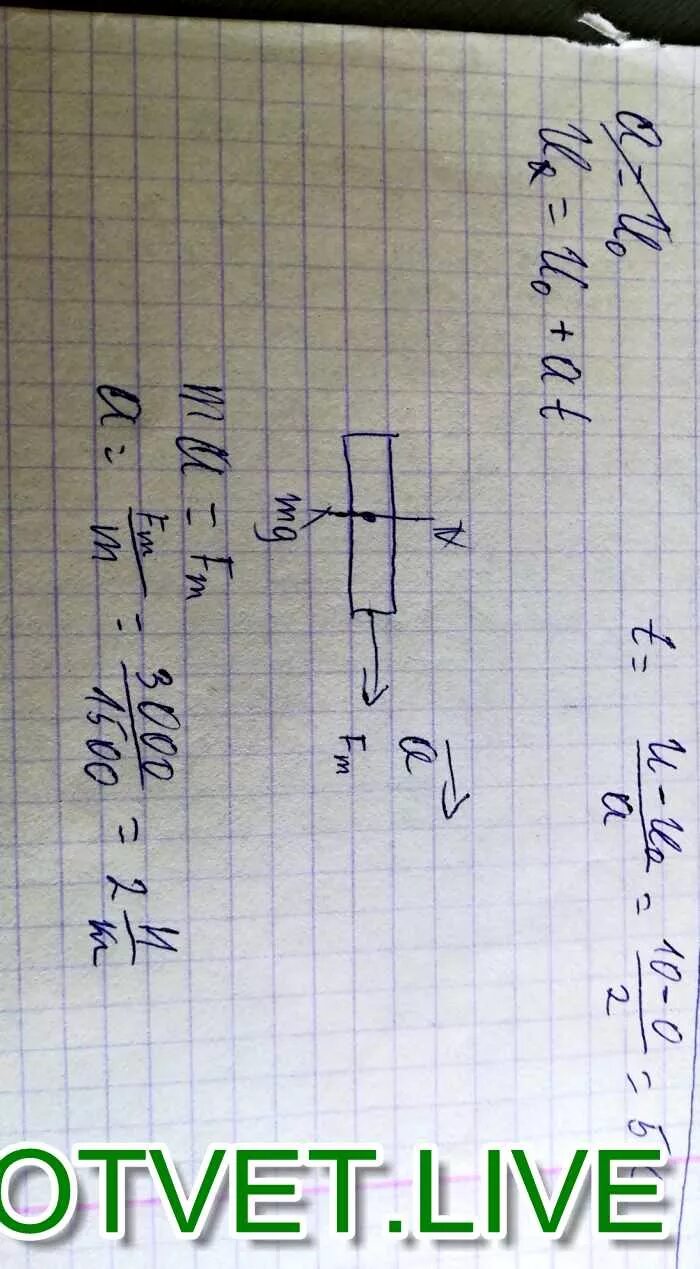 a - u₀
uₓ = u₀ + at
t = (u - u₀)/a = (10 - 0)/2 = 5
N
a
Fₘ
mg
ma = Fₘ
a = Fₘ/m = 3000/1500 = 2
OTVET.LIVE